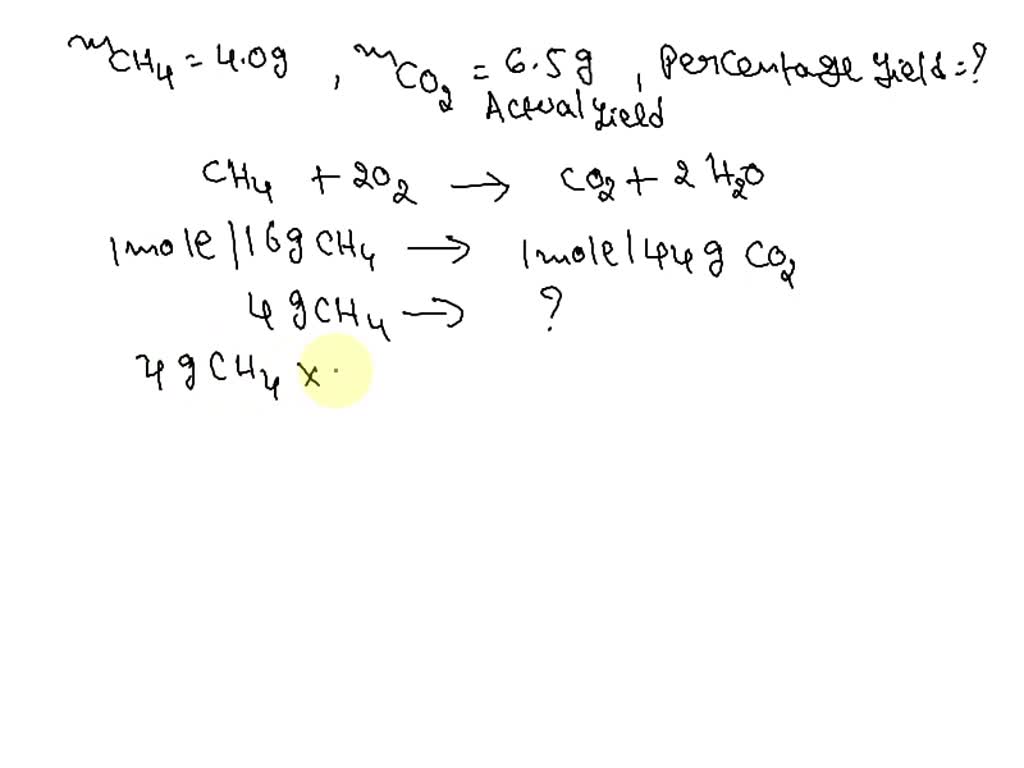 mCH₄ = 4.0g , mCO₂ = 6.5g , Percentage yield = ?
Actual yield
CH₄ + 2O₂ → CO₂ + 2 H₂O
1 mole | 16g CH₄ → 1 mole | 44 g CO₂
4 g CH₄ → ?
4 g CH₄ ×